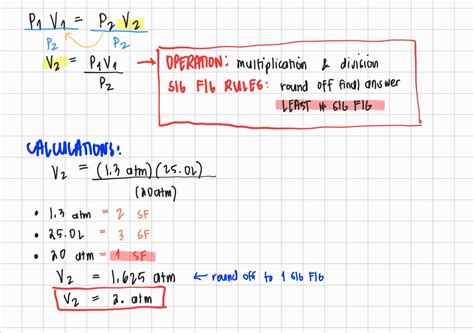 P₁ V₁ = P₂ V₂
P₂ P₂
V₂ = P₁V₁
P₂
→ OPERATION: multiplication & division
SIG FIG RULES: round off final answer
LEAST # SIG FIG
CALCULATIONS:
V₂ = (1.3 atm)(25.0L)
(20atm)
• 1.3 atm = 2 SF
• 25.0L = 3 SF
• 20 atm = 1 SF
V₂ = 1.625 atm ← round off to 1 SIG FIG
V₂ = 2. atm